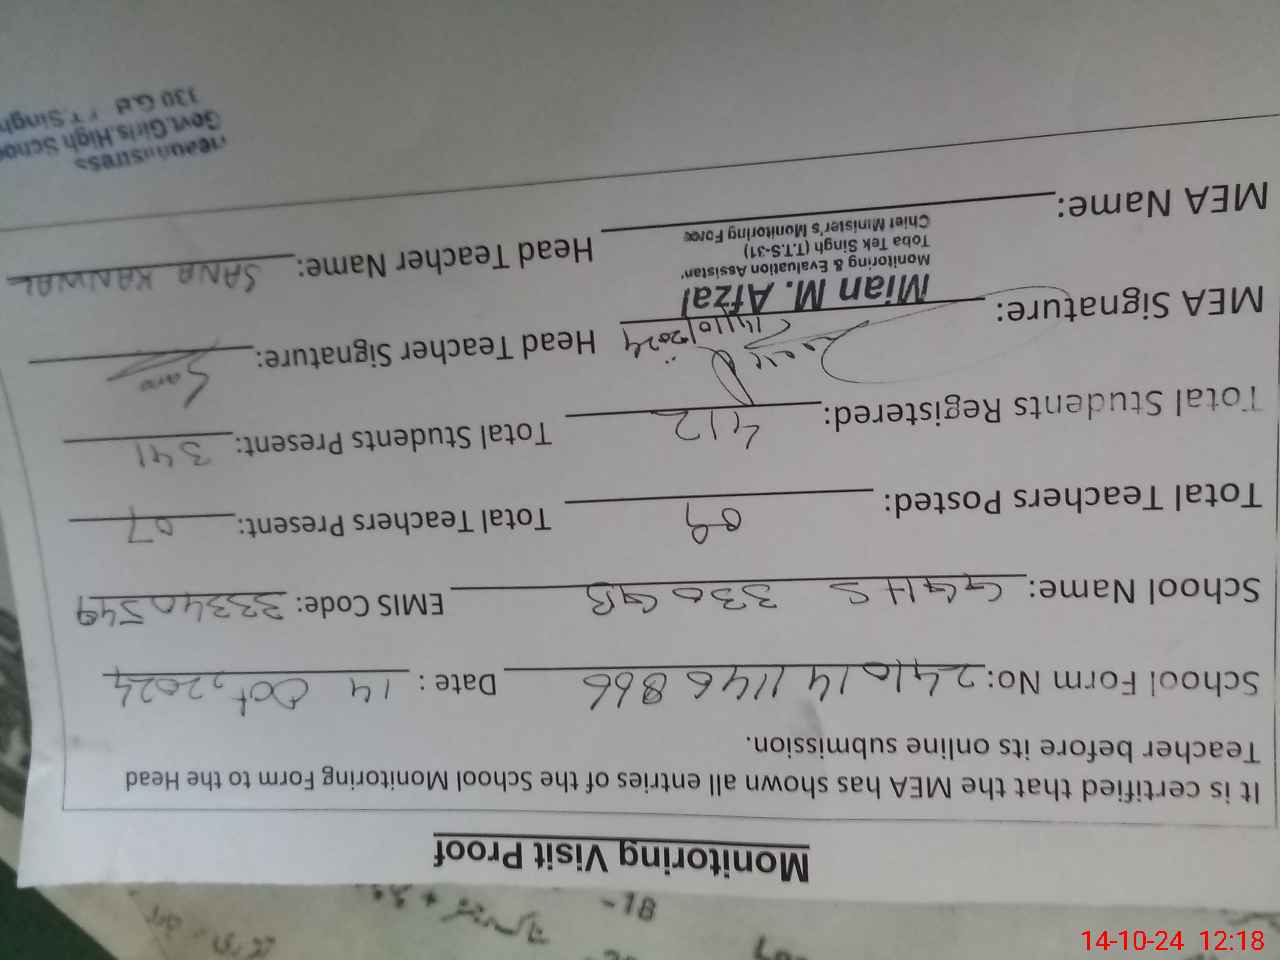 Monitoring Visit Proof
It is certified that the MEA has shown all entries of the School Monitoring Form to the Head
Teacher before its online submission.
School Form No: 2410141146866 Date: 14 Oct, 2024
School Name: GGHS 330 GB EMIS Code: 33340549
Total Teachers Posted: 09 Total Teachers Present: 07
Total Students Registered: 412 Total Students Present: 341
MEA Signature: 14/10/2024 Head Teacher Signature: Sana
Mian M. Afzal
Monitoring & Evaluation Assistant
Toba Tek Singh (T.T.S-31)
Chief Minister's Monitoring Force
MEA Name: Head Teacher Name: SANA KANWAL
Headmistress
Govt. Girls. High Schoo
330 G.B T.T. Singh
-18
14-10-24 12:18